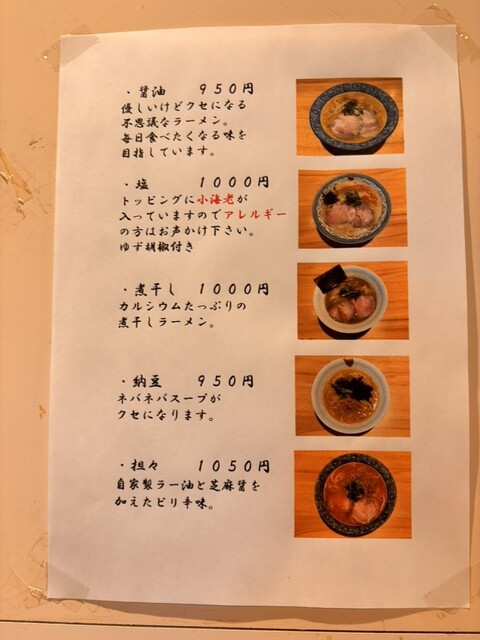 ・醤油　950円
優しいけどクセになる
不思議なラーメン。
毎日食べたくなる味を
目指しています。
・塩　1000円
トッピングに小海老が
入っていますのでアレルギー
の方はお声かけ下さい。
ゆず胡椒付き
・煮干し　1000円
カルシウムたっぷりの
煮干しラーメン。
・納豆　950円
ネバネバスープが
クセになります。
・担々　1050円
自家製ラー油と芝麻醤を
加えたピリ辛味。